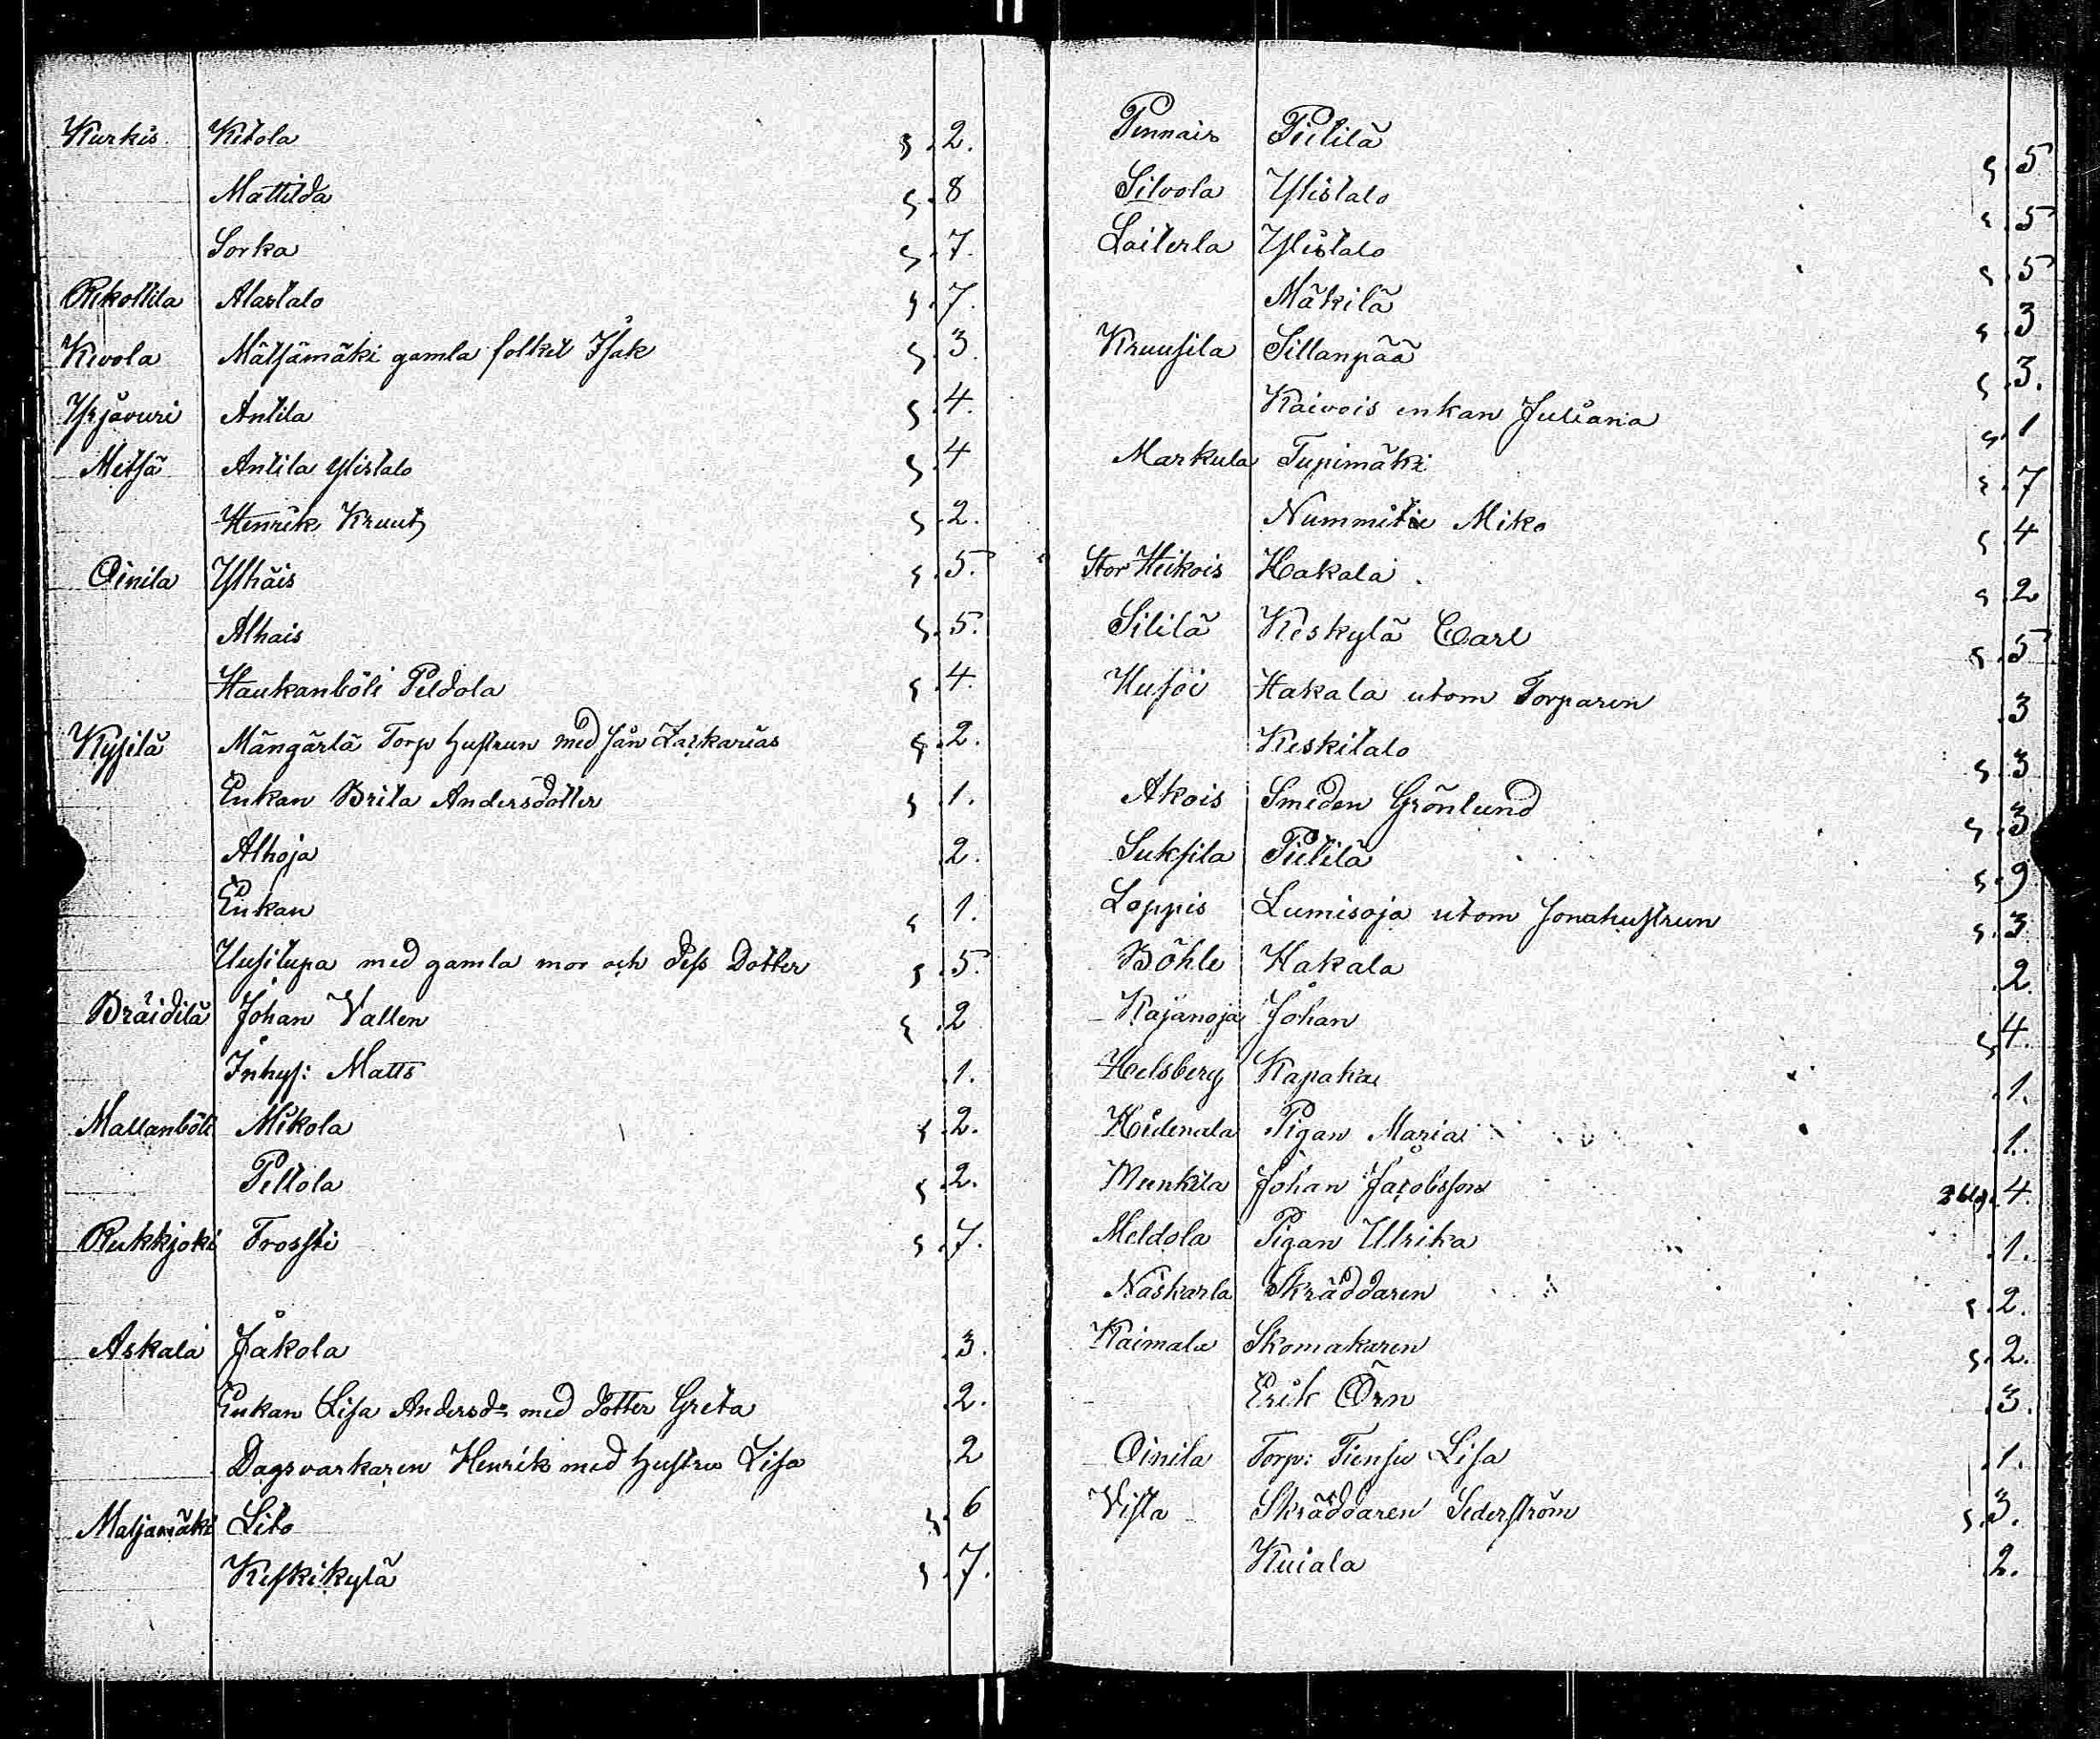 Kurkis Kitola 2.
Mattilda 8
Sorka 7.
Rekottila Alastalo 7.
Kevola Mätsämäki gamla folket Isak 3.
Yrjävuri Antila 4.
Metsä Antila Ylistalo 4
Henrik Kruut 2.
Oinila Ylhäis 5.
Alhais 5.
Haukanböli Peldola 4.
Kysilä Mängärlä Torp hustrun med sån Zackarias 2.
Enkan Brita Andersdotter 1.
Alhoja 2.
Enkan 1.
Uusitupa med gamla mor och dess Dotter 5.
Bräidilä Johan Vallen 2
Inhys: Matts 1.
Mallanböle Mikola 2.
Peltola 2.
Rukkijoki Trossti 7.
Askala Jakola 3.
Enkan Lisa Andersdr med dotter Greta 2.
Dagsvarkaren Henrik med hustru Lisa 2
Maljamäki Lito 6
Keskikylä 7.
Pennais Pietilä 5
Silvola Ylistalo 5
Laiterla Ylistalo 5
Mäkilä 3
Kruusila Sillanpää 3.
Kaivois enkan Juliana 1
Markula Tupimäki 7
Nummitie Miko 4
Stor Heikois Hakala 2
Sililä Keskylä Carl 5
Husoi Hakala utom Torparen 3
Keskitalo 3
Akois Smeden Grönlund 3
Suksila Pietilä 9
Loppis Lumisoja utom sonahustrun 3
Böhle Hakala 2.
Kajanoja Johan 4.
Helsberg Kapaka 1.
Hidenala Pigan Maria 1.
Munkila Johan Jacobsson 4.
Meldola Pigan Ulrika 1.
Naskarla Skräddaren 2.
Kaimala Skomakaren 2.
Erik Örn 3.
Oinila Torp: Tiensu Lisa 1.
Vista Skräddaren Sederström 3.
Kuiala 2.